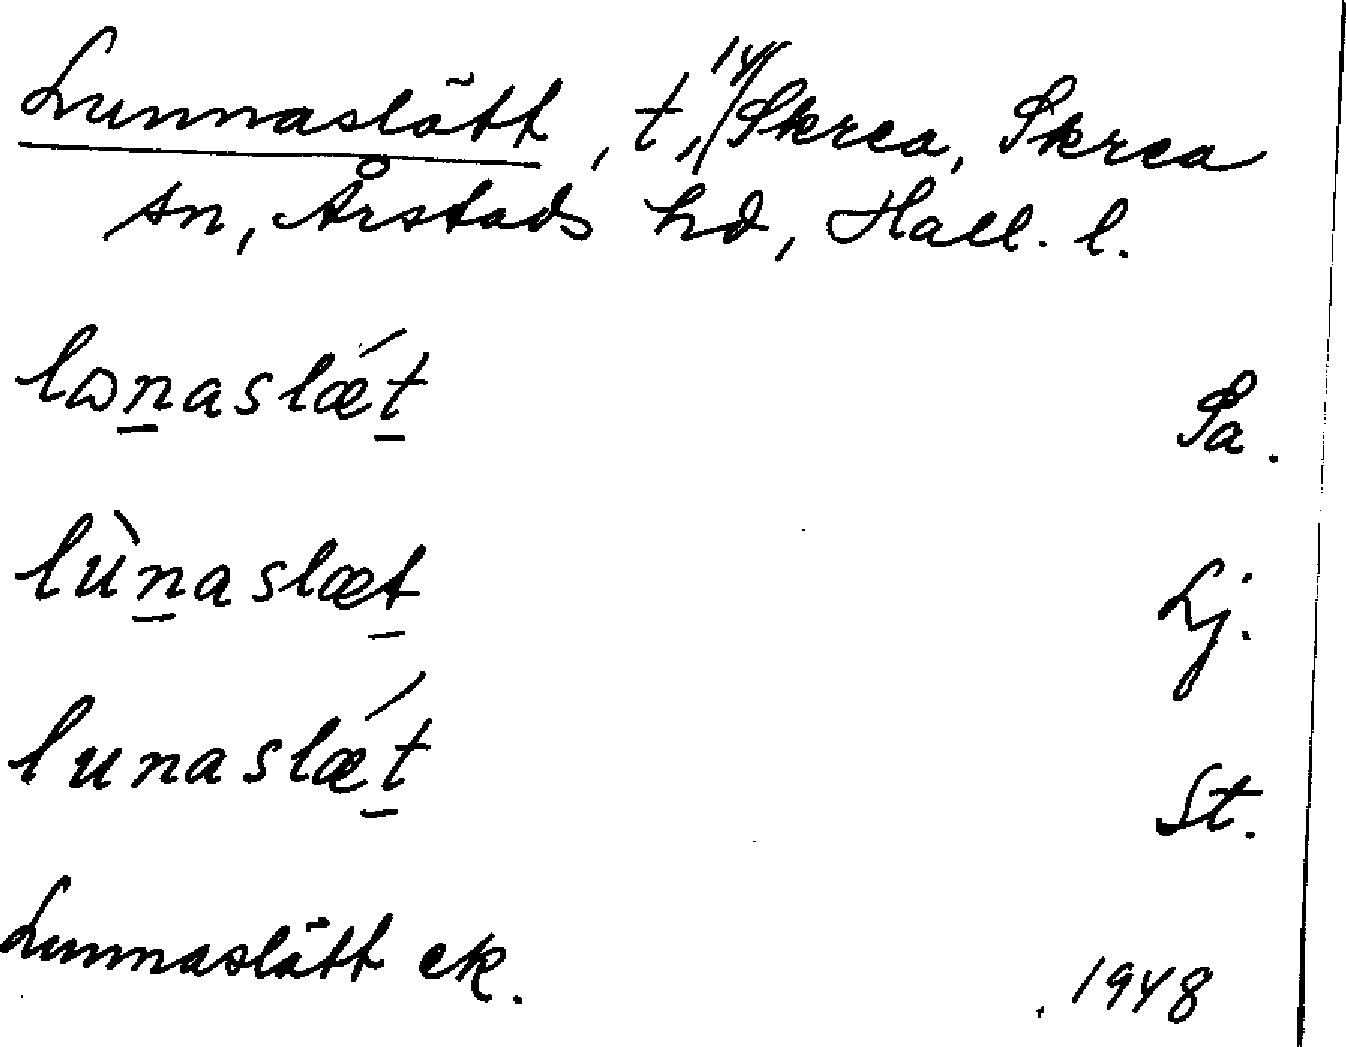 Lunnaslätt, t., 14/ Skrea, Skrea
sn, Årstads hd, Hall. l.
lωn̲aslǽt̲ Pa.
lùn̲aslæt̲ Lj.
lunaslǽt̲ St.
Lunnaslätt ek. 1948